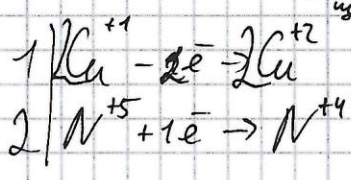 1 | 2Cu⁺¹ - 2ē → 2Cu⁺²
2 | N⁺⁵ + 1ē → N⁺⁴